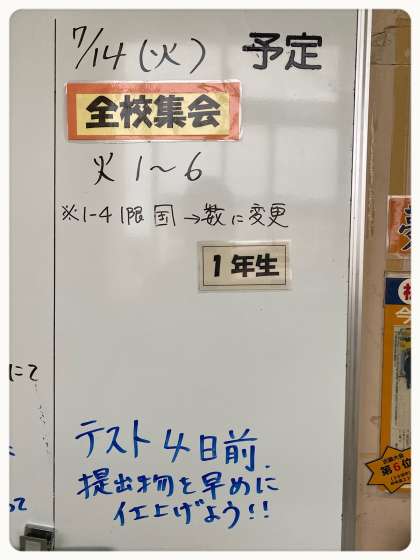 7/14(火) 予定
全校集会
火 1〜6
※1-4 1限 国→数に変更
1年生
テスト4日前.
提出物を早めに
仕上げよう!!
にて
第6位